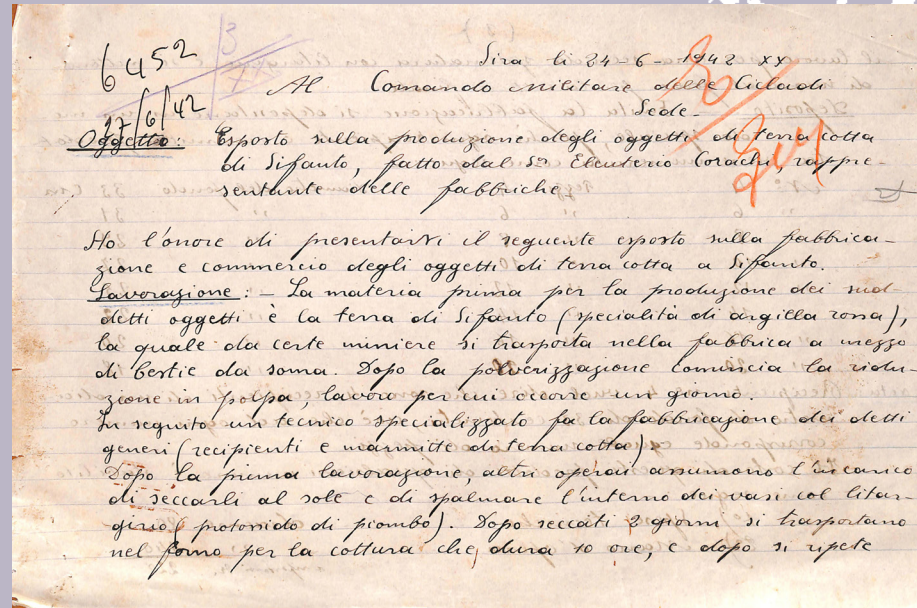 6452
27/6/42
Sira li 24-6-1942 XX
Al Comando militare delle Cicladi
Sede-
Oggetto: Esposto sulla produzione degli oggetti di terra cotta
di Sifanto, fatto dal Sr Eleuterio Corachi, rappre-
sentante delle fabbriche
Ho l'onore di presentarVi il seguente esposto sulla fabbrica-
zione e commercio degli oggetti di terra cotta a Sifanto.
Lavorazione: - La materia prima per la produzione dei sud-
detti oggetti è la terra di Sifanto (specialità di argilla rossa),
la quale da certe miniere si trasporta nella fabbrica a mezzo
di bestie da soma. Dopo la polverizzazione comincia la ridu-
zione in polpa, lavoro per cui occorre un giorno.
In seguito un tecnico specializzato fa la fabbricazione dei detti
generi (recipienti e marmitte di terra cotta).
Dopo la prima lavorazione, altri operai assumono l'incarico
di seccarli al sole e di spalmare l'interno dei vasi col litar-
girio (protossido di piombo). Dopo seccati 2 giorni si trasportano
nel forno per la cottura che dura 10 ore, e dopo si ripete